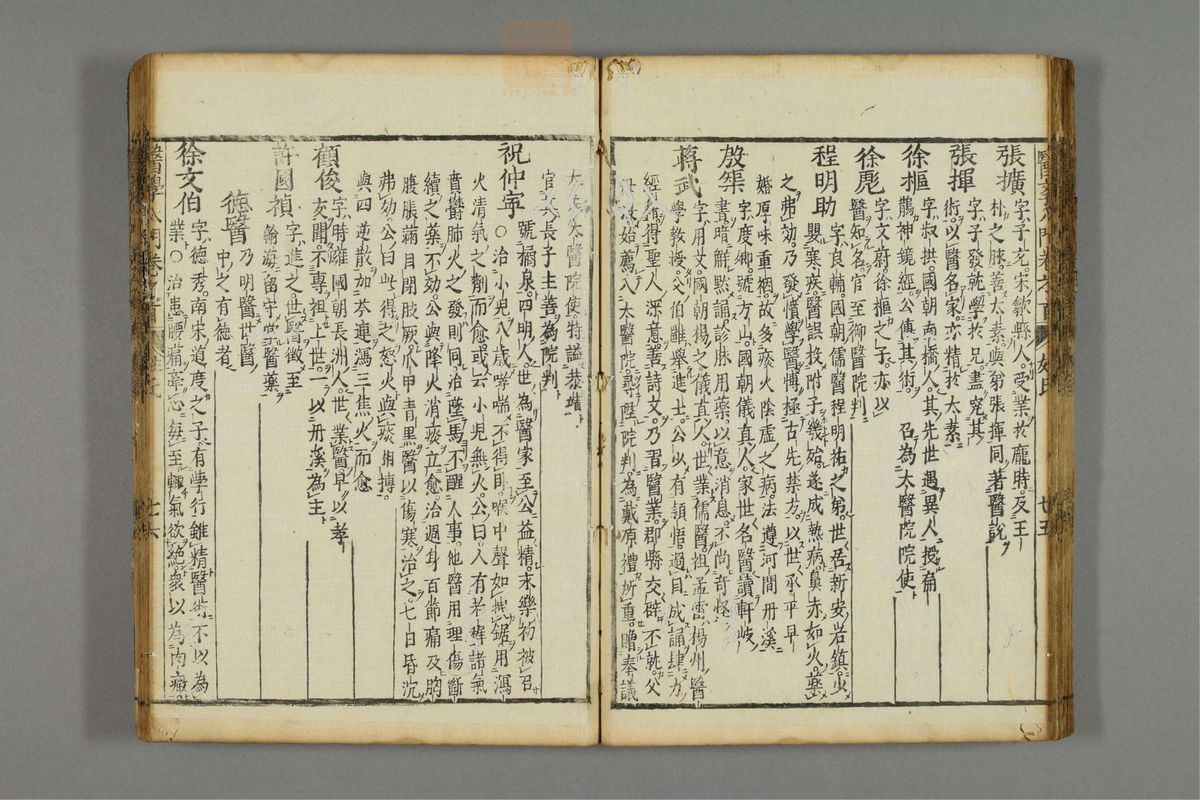 張擴 字子充宋歙縣人受業於龐時及王
朴之脉善太素與弟張揮同著醫說
張揮 字子發乾學於兄盡究其
術以醫名家亦精於太素
徐樞 字叔拱國朝南橋人其先世遇異人授扁
鵲神鏡經公傳其術 召為太醫院院使
徐彪 字文蔚徐樞之子亦以
醫知名官至御醫院判
程明助 字良輔國朝儒醫程明祐之弟世居新安岩鎮少
嬰寒疾醫誤投附子幾殆遂成熱病鼻赤如火藥
之弗効乃發憤學醫博極古先禁方以世承平早
婚厚味重裀故多痰火陰虛之病法遵河間丹溪
殷榘 字度卿號方山國朝儀真人家世名醫讀軒岐
書暗解默診脉用藥以意消息不尚奇怪
蔣武 字用文國朝揚之儀真人世業儒醫祖孟雷揚州醫
學教授父伯雝舉進士公以有頴悟過目成誦肆力
經 得聖人深意善詩文乃習醫業郡縣交辟不就父
母 始薦入太醫院尋陞院判為戴原禮所重贈奉議
大夫太醫院使特諡恭靖
官其長子主善為院判
祝仲寧 號橘泉四明人世為醫家至公益精永樂初被召
○治小兒八歲哮喘不得卧喉中聲如拽鋸用瀉
火清氣之劑而愈或云小兒無火公曰人有老稚諸氣
賁鬱肺火之發則同治墜馬不醒人事他醫用理傷斷
續之藥不効公與降火消痰立愈治週身百節痛及胸
腹脹滿目閉肢厥爪甲青黑醫以傷寒治之七日昏沉
弗効公曰此得之怒火與痰相搏
與四逆散加芩連瀉三焦火而愈
顧俊 字時雍國朝長洲人世業醫早以孝
友聞不專祖上世一以丹溪為主
許國禎 字進之世醫徵至
翰海留守掌醫藥
德醫 乃明醫世醫
中之有德者
徐文伯 字德秀南宋道度之子有學行雖精醫術不以為
業○治患腰痛牽心每至輒氣欲絕衆以為肉癥